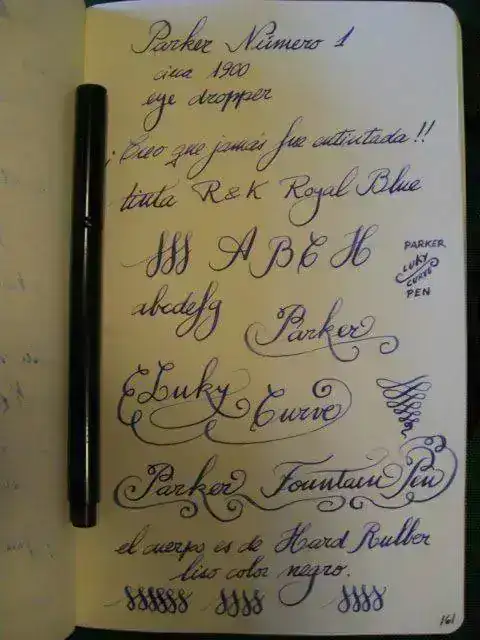 Parker Número 1
circa 1900
eye dropper
¡Creo que jamás fue entintada!!
tinta R&K Royal Blue
A B C H
PARKER
LUKY
CURVE
PEN
abcdefg
Parker
Luky
Curve
Parker Fountain Pen
el cuerpo es de Hard Rubber
liso color negro.
161